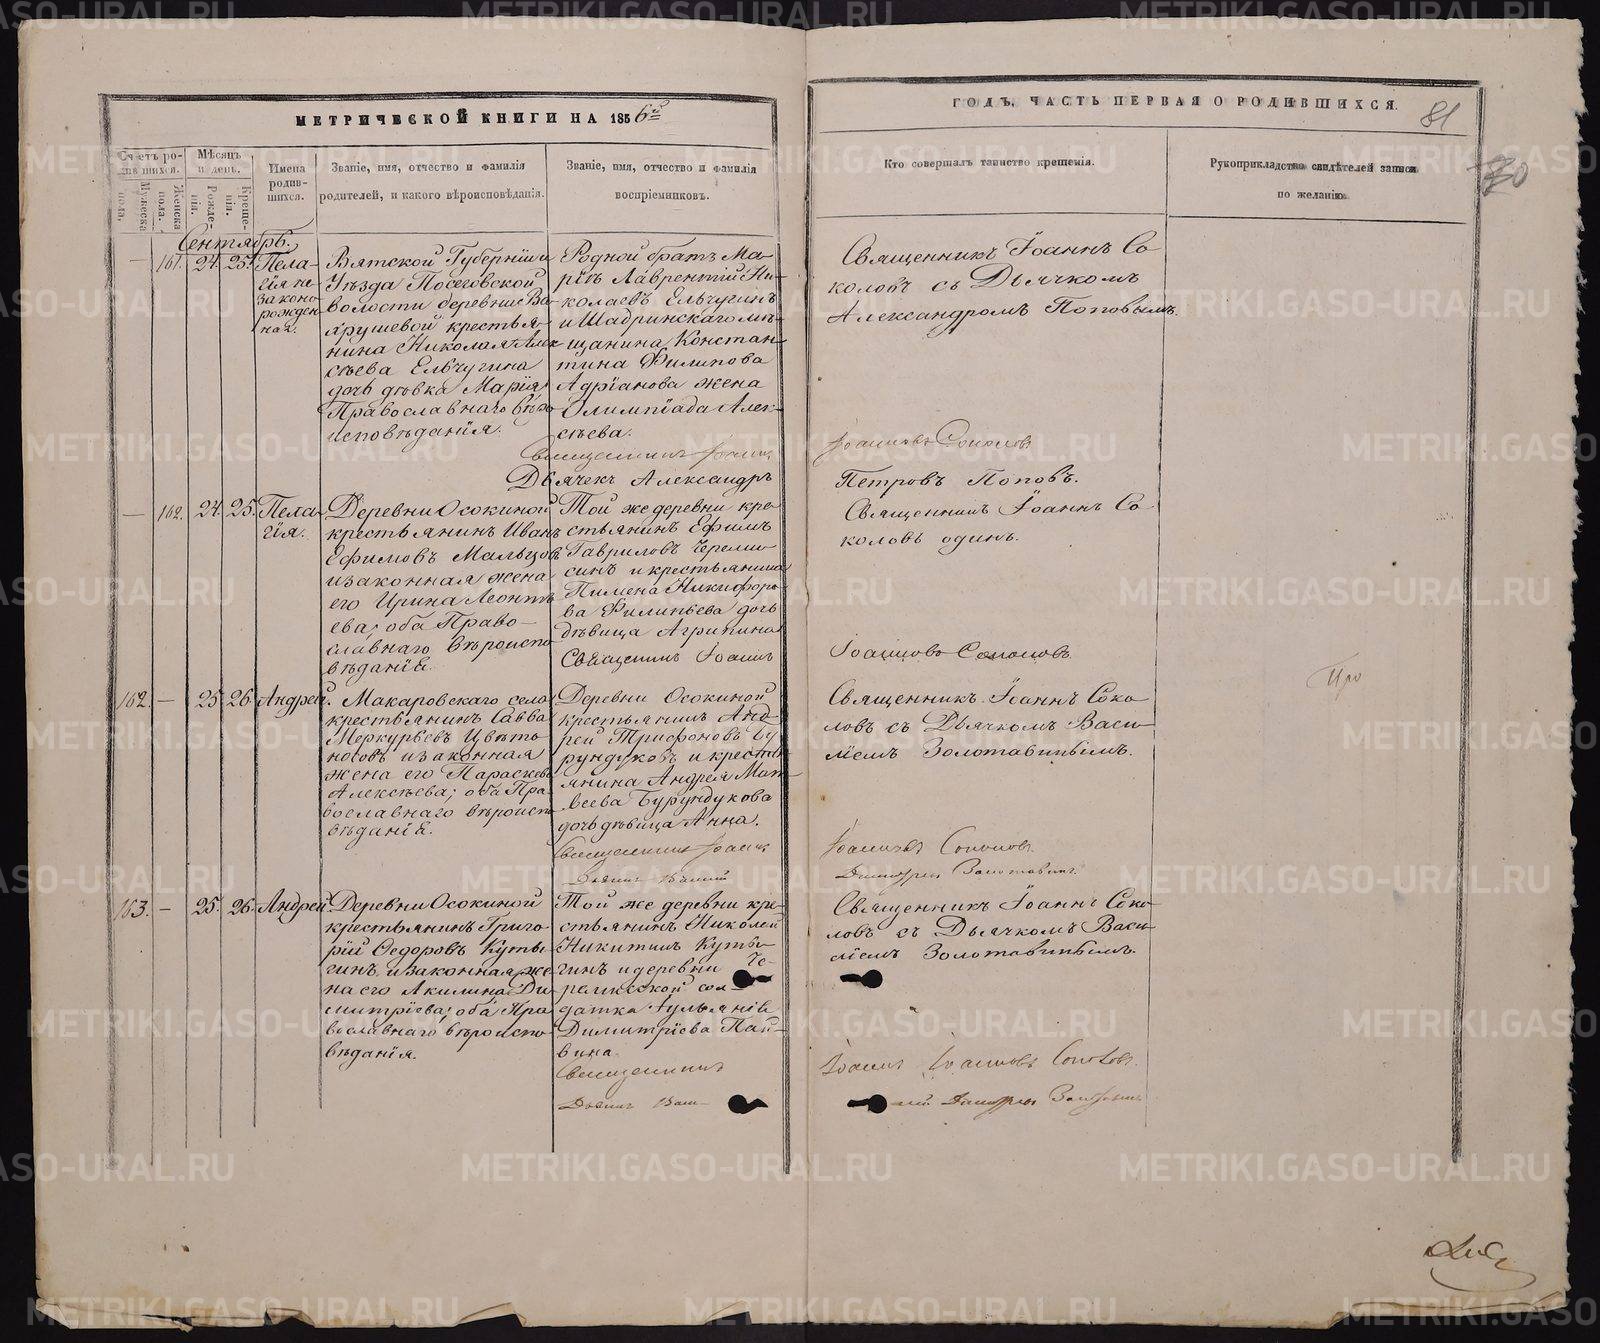 МЕТРИЧЕСКОЙ КНИГИ НА 1856й
ГОДЪ, ЧАСТЬ ПЕРВАЯ О РОДИВШИХСЯ.
81
70
Счетъ родившихся.
Мужеска пола.
Женска пола.
Мѣсяцъ и день.
Рожденія.
Крещенія.
Имена родившихся.
Званіе, имя, отчество и фамилія
родителей, и какого вѣроисповѣданія.
Званіе, имя, отчество и фамилія
воспріемниковъ.
Кто совершалъ таинство крещенія.
Рукоприкладство свидѣтелей записи
по желанію.
Сентябрь.
— 161. 24. 25.
Пела-
гія не
законо
рожден
ная.
Вятской Губерніи и
Уѣзда Посеговской
волости деревни Ва-
рушевой крестья-
нина Николая Алек
сѣева Ельчугина
дочь дѣвка Марія
Православнаго вѣро
исповѣданія.
Родной братъ Ма-
ріи Лаврентій Ни-
колаевъ Ельчугинъ
и Шадринскаго мѣ-
щанина Констан-
тина Филипова
Адріанова жена
Олимпіада Алек-
сѣева.
Священникъ Іоаннъ Со
коловъ съ Дьячкомъ
Александромъ Поповымъ.
Священникъ Іоаннъ
Іоанновъ Соколовъ
Дьячекъ Александръ
Петровъ Поповъ.
— 162. 24. 25.
Пела-
гія.
Деревни Осокиной
крестьянинъ Иванъ
Ефимовъ Мальцовъ
и законная жена
его Ирина Леонть
ева; оба Право-
славнаго вѣроиспо
вѣданія.
Той же деревни кре-
стьянинъ Ефимъ
Гавриловъ Череми-
синъ и крестьянина
Пимена Никифоро-
ва Филипьева дочь
дѣвица Агрипина
Священникъ Іоаннъ Со
коловъ одинъ.
Священникъ Іоаннъ
Іоанновъ Соколовъ
162. — 25. 26. Андрей.
Макаровскаго села
крестьянинъ Савва
Меркурьевъ Цвѣто
носовъ и законная
жена его Параскева
Алексѣева; оба Пра-
вославнаго вѣроиспо
вѣданія.
Деревни Осокиной
крестьянинъ Анд-
рей Трифоновъ Бу
рундуковъ и кресть-
янина Андрея Мат-
веева Бурундукова
дочь дѣвица Анна.
Священникъ Іоаннъ Соко-
ловъ съ Дьячкомъ Васи-
ліемъ Золотавинымъ.
Про
Священникъ Іоаннъ
Іоанновъ Соколовъ
Дьячекъ Василій
Золотавинъ
163. — 25. 26. Андрей.
Деревни Осокиной
крестьянинъ Григо
рій Ѳедоровъ Куты-
гинъ и законная же-
на его Акилина Ди-
митріева; оба Пра
вославнаго вѣроиспо-
вѣданія.
Той же деревни кре-
стьянинъ Николай
Никитинъ Куты-
гинъ и деревни Че-
сол-
датка Іульянія
Димитріева Пай-
вина.
Священникъ Іоаннъ Соко-
ловъ съ Дьячкомъ Васи-
ліемъ Золотавинымъ.
Священникъ
Іоаннъ Іоанновъ Соколовъ.
Дьячекъ Васи-
METRIKI.GASO-URAL.RU